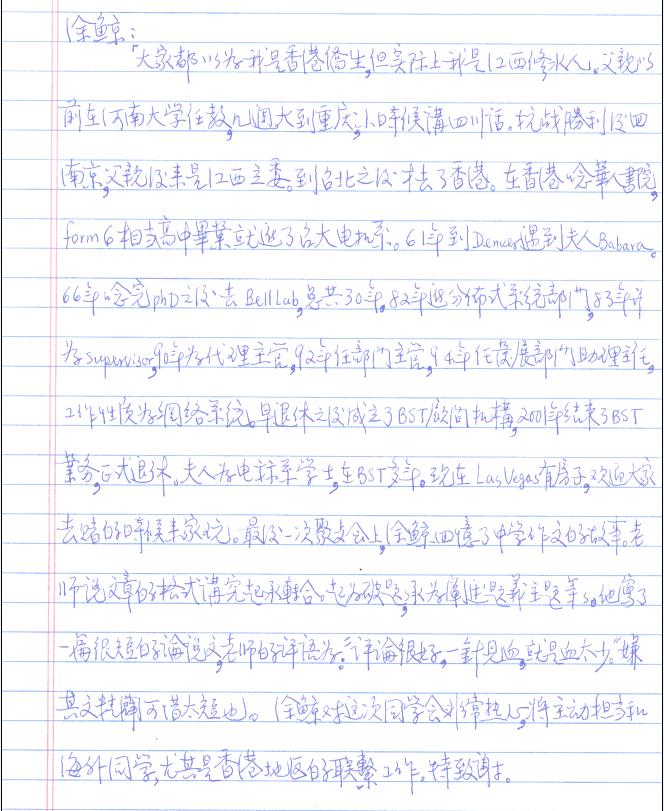 徐鲸:
「大家都以为我是香港僑生,但实际上我是江西修水人。父親以
前在河南大学任教,几週大到重庆,小時候講四川话。抗战勝利後回
南京,父親後来是江西主委。到台北之後才去了香港。在香港唸華人書院,
form 6相当高中畢業就进了台大电机系。61年到Denver遇到夫人Babara。
66年唸完phD之後去Bell Lab,总共30年,82年进分佈式系统部门,83年升
为supervisor,90年为代理主管,92年任部门主管,94年任發展部门助理主任,
工作性质为網络系统。早退休之後成立了BST顾问机構,2001年结束了BST
業务,正式退休。夫人为电脑系学士,在BST多年。现在Las Vegas有房子,欢迎大家
去赌的時候来家玩。最後一次聚会上,徐鲸回憶了中学作文的故事。老
师说文章的格式講究起承轉合。起为破题,承为阐述题義主题等等。他寫了
一篇很短的論说文,老师的评语为:"评論很好,一針見血,就是血太少。"嫌
其文精闢可惜太短也」。徐鲸对这次同学会非常热心,将主动担当和
海外同学,尤其是香港地区的联繫工作。特致谢。